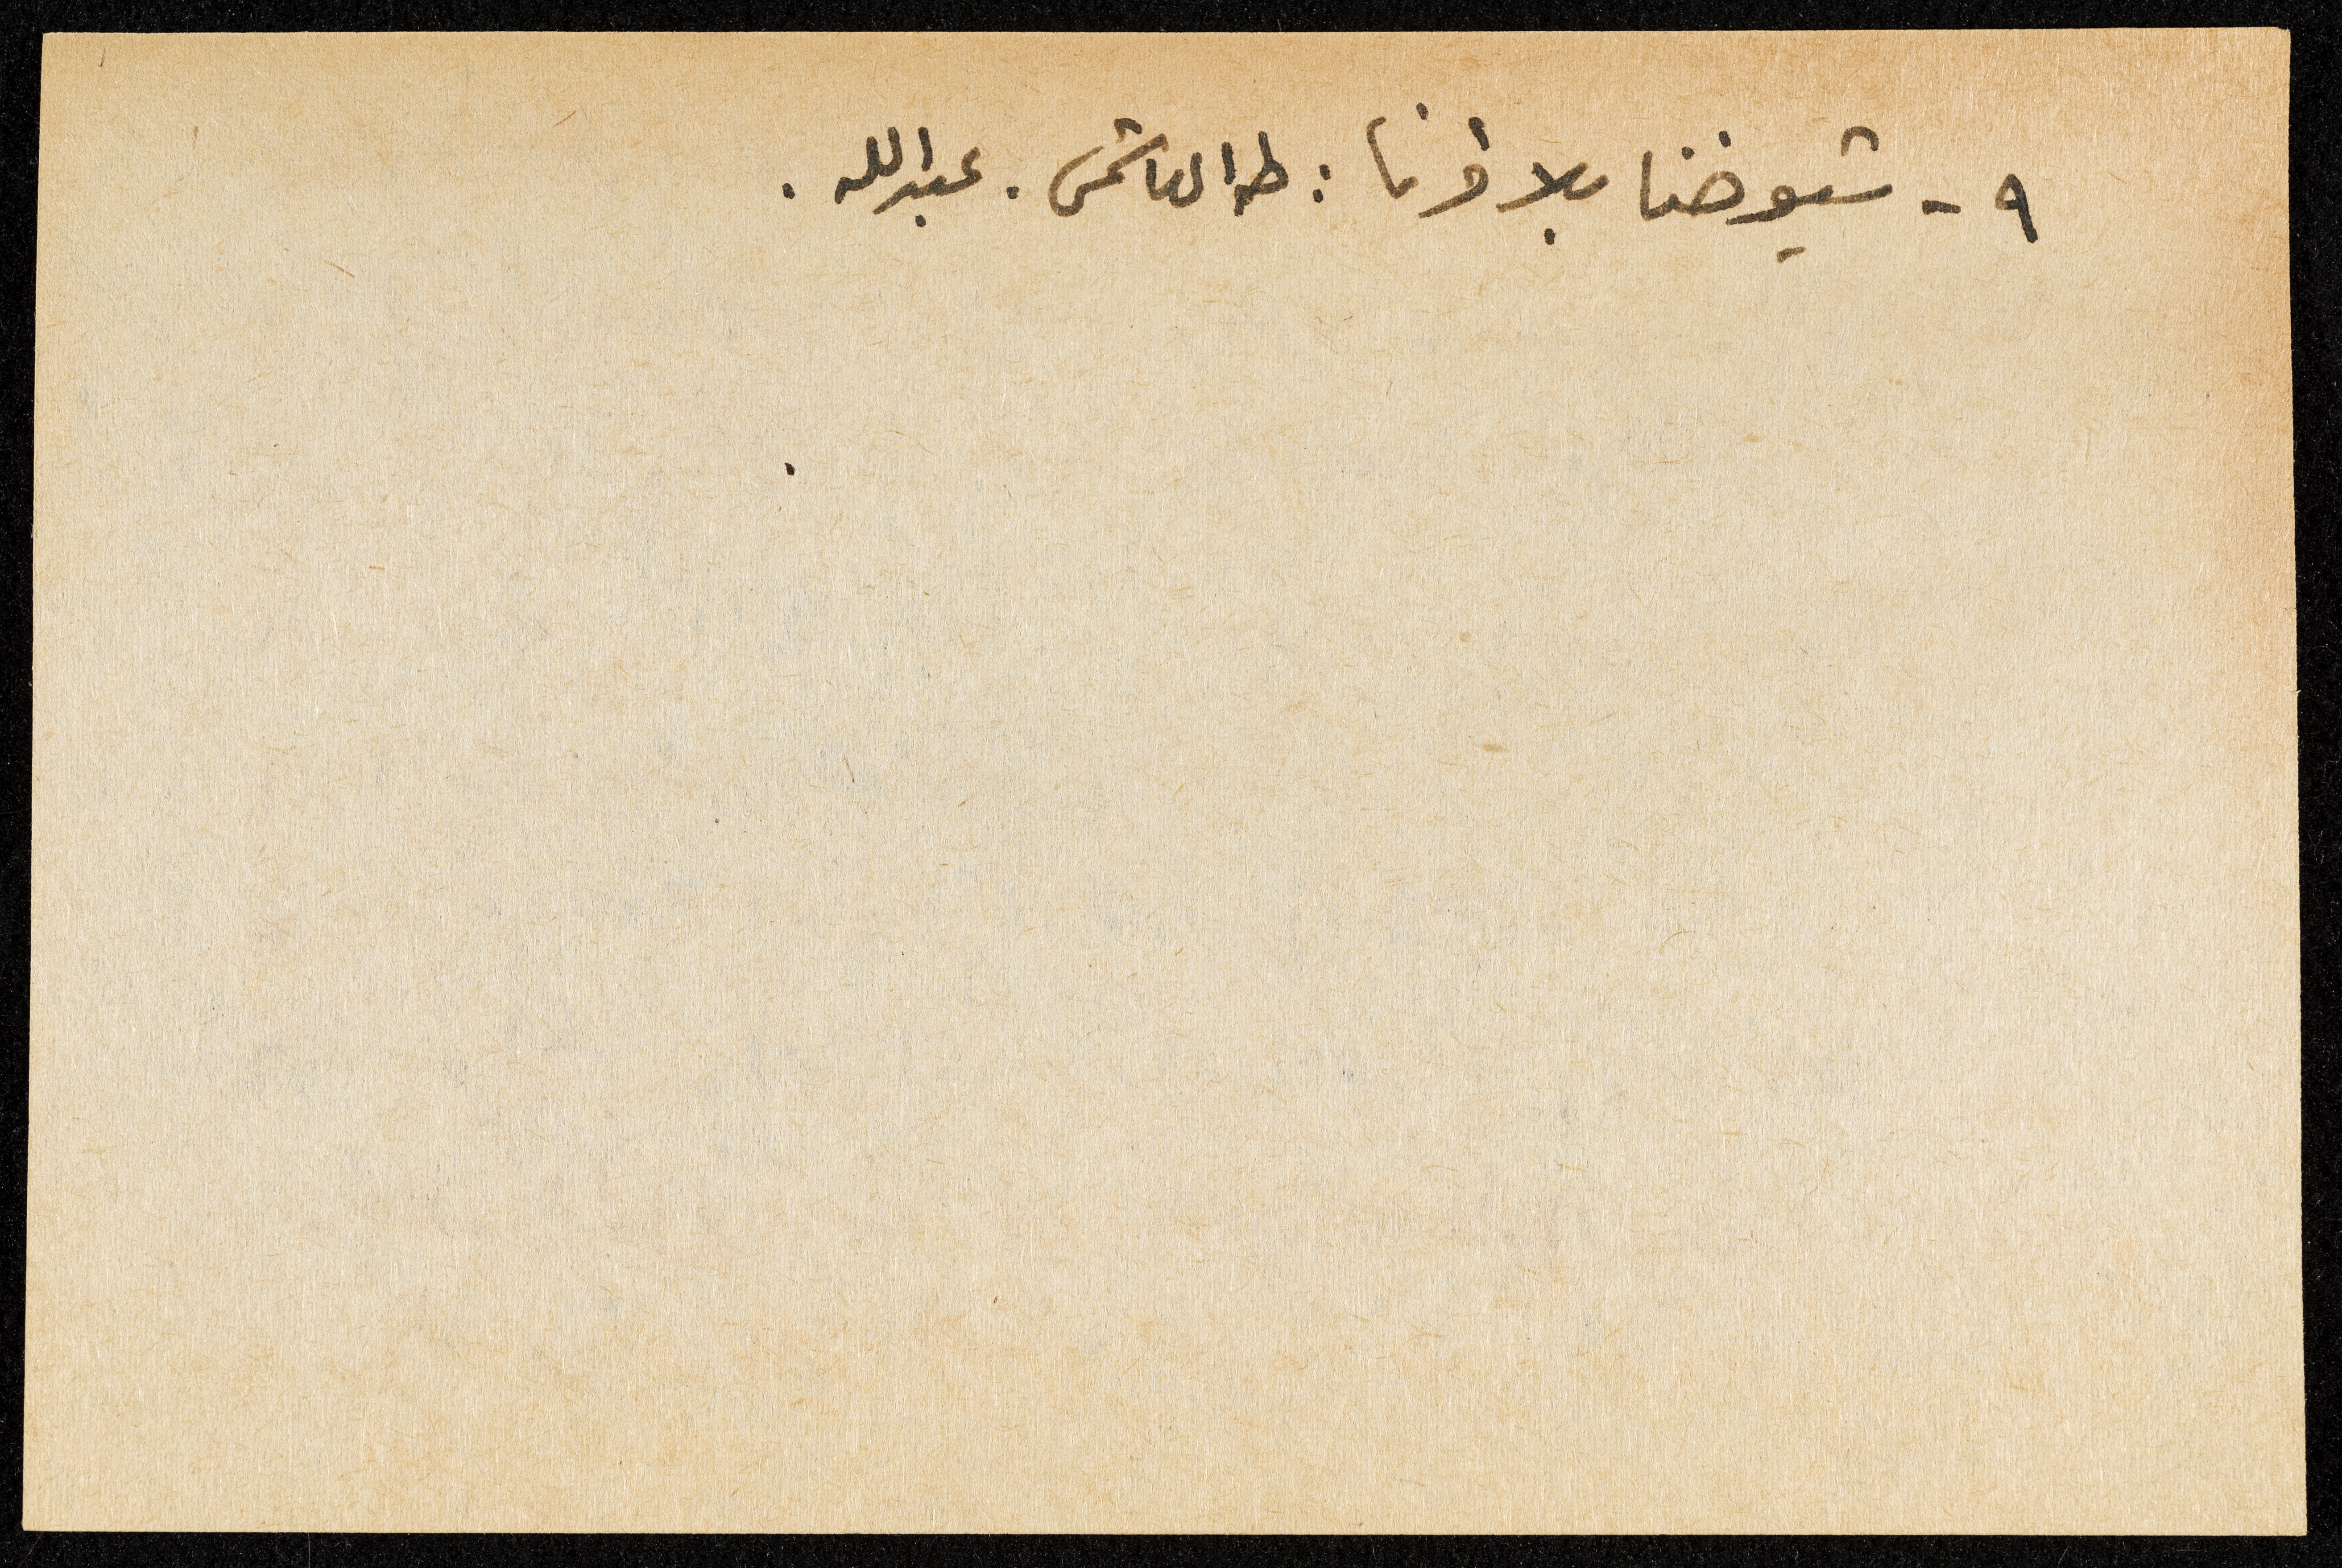 ٩ - شيوخنا بلا إذننا : طه الهاشمي . عبد الله .